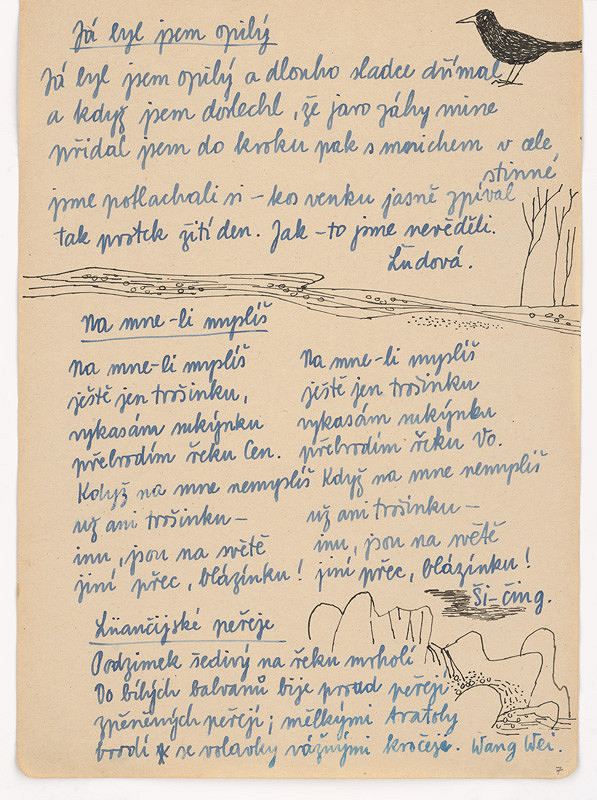 Já byl jsem opilý
Já byl jsem opilý a dlouho sladce dřímal
a když jsem doslechl, že jaro záhy mine
přidal jsem do kroku pak s mnichem v cele
stinné
jsme potlachali si – kos venku jasně zpíval
tak prostek žití den. Jak-to jsme nevěděli.
Lidová.
Na mne-li myslíš
Na mne-li myslíš
ještě jen trošinku,
vykasám sukýnku
přebrodím řeku Čen.
Když na mne nemyslíš
už ani trošinku –
inu, jsou na světě
jiní přec, blázínku!
Na mne-li myslíš
ještě jen trošinku
vykasám sukýnku
přebrodím řeku Vo.
Když na mne nemyslíš
už ani trošinku –
inu, jsou na světě
jiní přec, blázínku!
Ši-ťing.
Lüančijské peřeje
Podzimek šedivý na řeku mrholí
Do bílých balvanů bije proud peřejí
zpěněných peřejí; mělkými
brodí se volavky vážnými kročeji. Wang Wei.
7